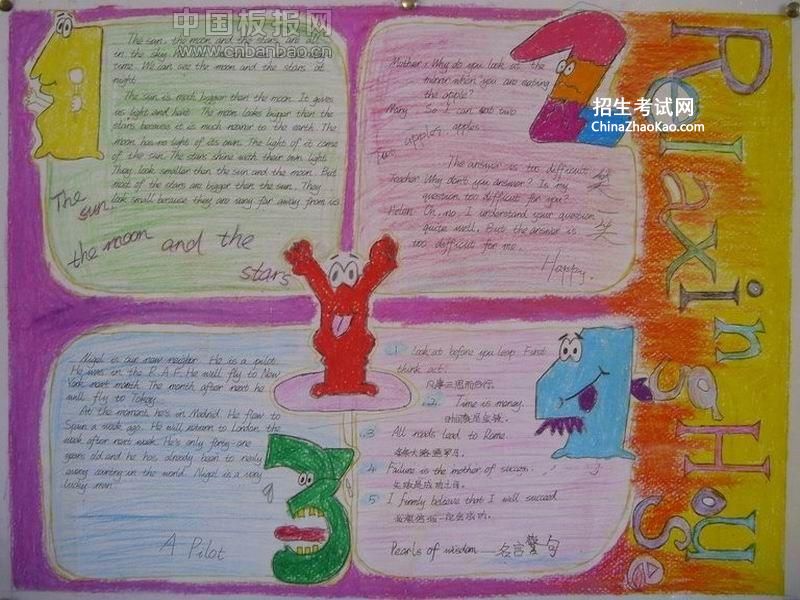 中国板报网
www.cnbanbao.cn
招生考试网
ChinaZhaoKao.com
Relaxing House
The sun, the moon and the stars are all
in the sky.
time. We can see the moon and the stars at
night.
The sun is much bigger than the moon. It gives
us light and heat. The moon looks bigger than the
stars because it is much nearer to the earth. The
moon has no light of its own. The light of it come
of the sun. The stars shine with their own light.
They look smaller than the sun and the moon. But
most of the stars are bigger than the sun. They
look small because they are very far away from us
The sun,
the moon and the
stars
Mother: Why do you look at the
mirror when you are eating
the apple?
Mary: So I can eat two
apples.
Two apples
The answer is too difficult
Teacher: Why don't you answer? Is my
question too difficult for you?
Helen: Oh, no. I understand your question
quite well. But the answer is
too difficult for me.
笑
笑
Happy.
Nigel is our new neighbor. He is a pilot.
He was in the R.A.F. He will fly to New
York next month. The month after next he
will fly to Tokoy.
At the moment, he's in Madrid. He flew to
Spain a week ago. He will return to London the
week after next week. He's only forty-one
years old and he has already been to nealy
every country in the world. Nigel is a very
lucky man.
A Pilot
1 Look at before you leap. First
think act.
凡事三思而后行。
2. Time is money.
时间就是金钱。
3 All roads lead to Rome.
条条大路通罗马。
4 Failure is the mother of success.
失败是成功之母。
5 I firmly believe that I will succeed
Pearls of wisdom 名言警句